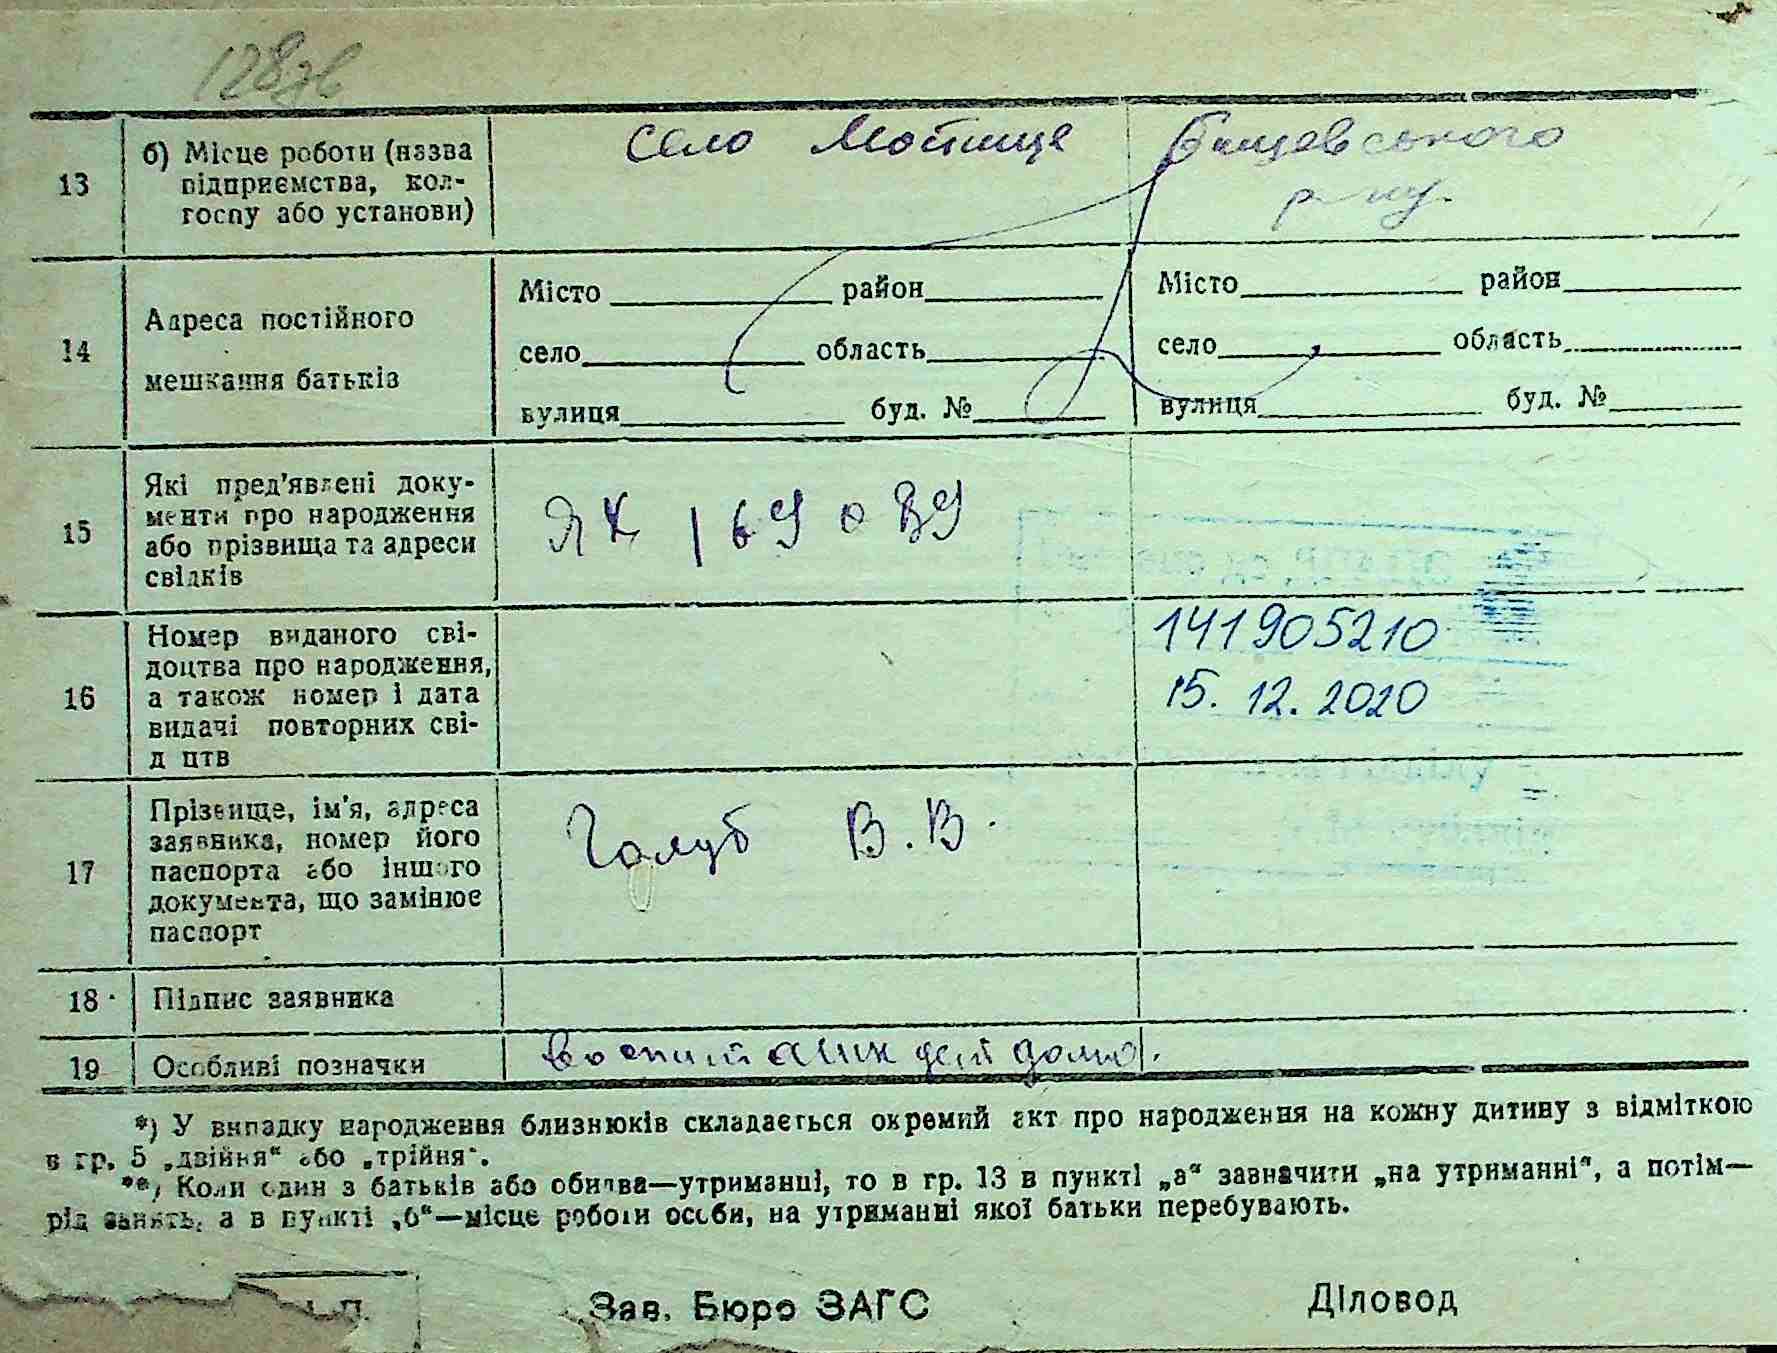 128зв
13 б) Місце роботи (назва підприємства, колгоспу або установи)
село Мотижце Бишевського
р-ну.
14 Адреса постійного мешкання батьків
Місто район Місто район
село область село область
вулиця буд. № вулиця буд. №
15 Які пред'явлені документи про народження або прізвища та адреси свідків
ЯК 169089
16 Номер виданого свідоцтва про народження, а також номер і дата видачі повторних свід цтв
141905210
15.12.2020
17 Прізвище, ім'я, адреса заявника, номер його паспорта або іншого документа, що замінює паспорт
Голуб В.В.
18 Підпис заявника
19 Особливі позначки
воспитаник дет дома.
*) У випадку народження близнюків складається окремий акт про народження на кожну дитину з відміткою
в гр. 5 „двійня“ або „трійня“.
**) Коли один з батьків або обидва—утриманці, то в гр. 13 в пункті „а“ зазначити „на утриманні“, а потім—
рід занять, а в пункті „б“—місце роботи особи, на утриманні якої батьки перебувають.
Зав. Бюро ЗАГС Діловод